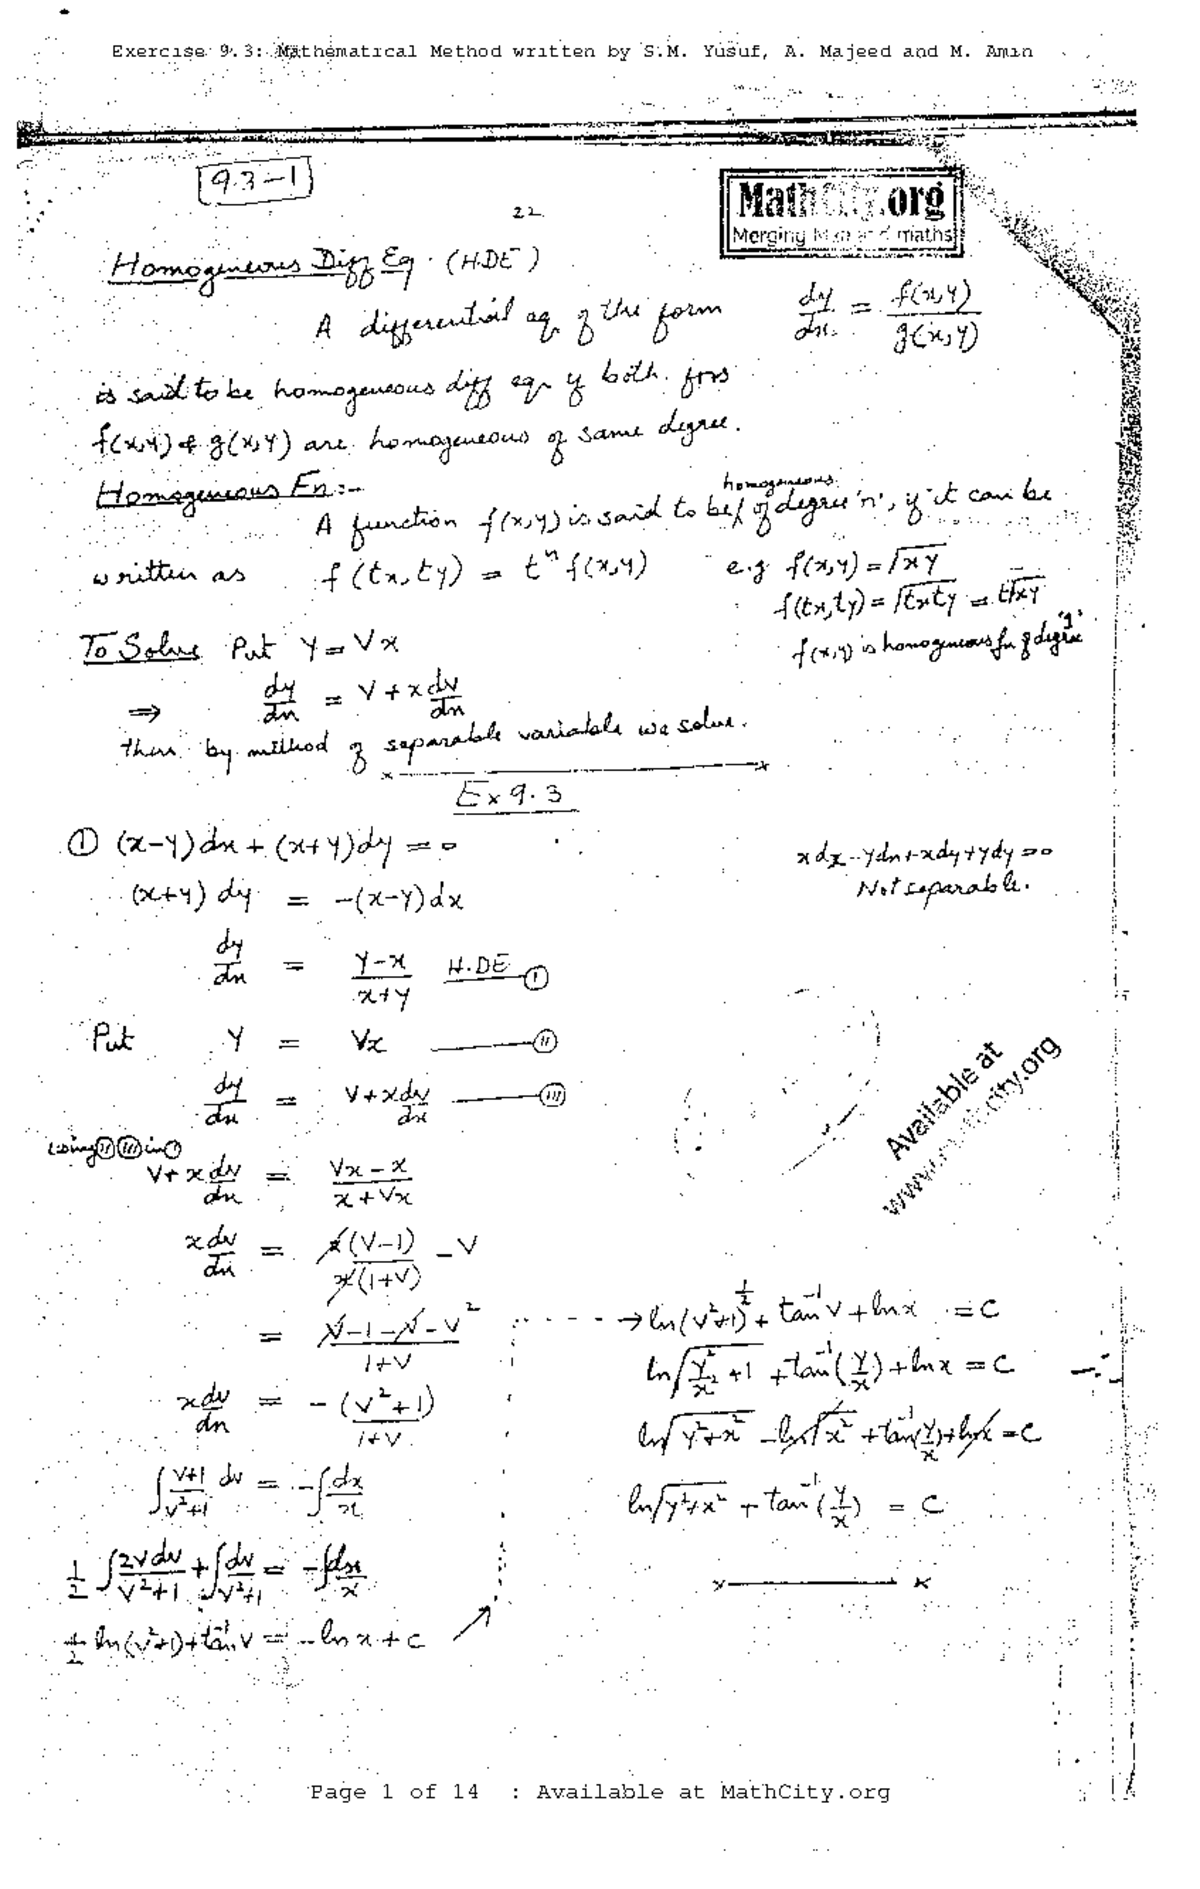 Exercise 9.3: Mathematical Method written by S.M. Yusuf, A. Majeed and M. Amin
9.3-1
22
MathCity.org
Merging man and maths
Homogeneous Diff Eq. (H.DE)
A differential eq. of the form dy/dx = f(x,y)/g(x,y)
is said to be homogeneous diff eq. if both fns
f(x,y) & g(x,y) are homogeneous of same degree.
Homogeneous Fn:-
A function f(x,y) is said to be homogeneous of degree 'n', if it can be
written as f(tx,ty) = tⁿ f(x,y) e.g f(x,y) = √xy
f(tx,ty) = √txty = t√xy
f(x,y) is homogeneous fn of degree '1'
To Solve Put y = Vx
⇒ dy/dx = V + x dv/dx
then by method of separable variable we solve.
Ex 9.3
① (x-y)dx + (x+y)dy = 0
xdx - ydx + xdy + ydy = 0
(x+y) dy = -(x-y)dx
Not separable.
dy/dx = y-x/x+y H.DE ①
Put y = Vx —— ⑪
dy/dx = V + x dv/dx —— ⑪I
Using ⑪ ⑪I in ①
V + x dv/dx = Vx - x/x + Vx
x dv/dx = x(V-1)/x(1+V) - V
= V-1-V-V²/1+V
x dv/dx = -(V²+1)/1+V
∫ V+1/V²+1 dv = -∫ dx/x
½ ∫ 2Vdv/V²+1 + ∫ dv/V²+1 = -∫ dx/x
½ ln(V²+1) + tan⁻¹V = -ln x + C
→ ln(V²+1)^½ + tan⁻¹V + ln x = C
ln√(y²/x² + 1) + tan⁻¹(y/x) + ln x = C
ln√(y²+x²) - ln√x² + tan⁻¹(y/x) + ln x = C
ln√(y²+x²) + tan⁻¹(y/x) = C
Available at
www.mathcity.org
Page 1 of 14 : Available at MathCity.org